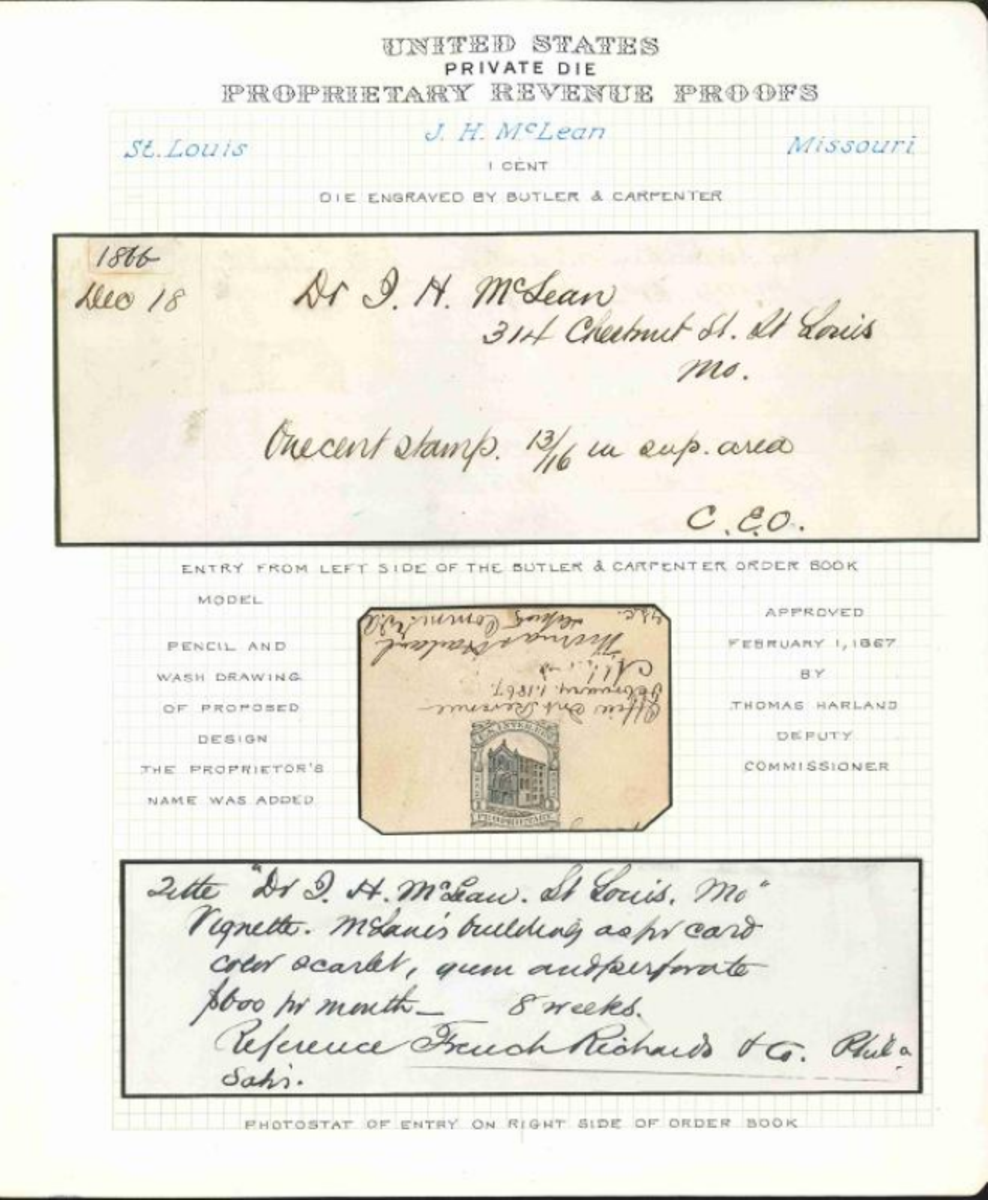 UNITED STATES
PRIVATE DIE
PROPRIETARY REVENUE PROOFS
St. Louis J. H. McLean Missouri
1 CENT
DIE ENGRAVED BY BUTLER & CARPENTER
1866
Dec 18 Dr J. H. McLean
314 Chestnut St. St Louis
Mo.
One cent stamp. 13/16 in sup. area
C. E. O.
ENTRY FROM LEFT SIDE OF THE BUTLER & CARPENTER ORDER BOOK
MODEL
PENCIL AND
WASH DRAWING
OF PROPOSED
DESIGN
THE PROPRIETOR'S
NAME WAS ADDED
Office Int Revenue
February. 1. 1867.
Thomas Harland
PROPRIETARY
APPROVED
FEBRUARY 1, 1867
BY
THOMAS HARLAND
DEPUTY
COMMISSIONER
"Dr J. H. McLean. St Louis. Mo"
Vignette. McLane's building as pr card
color scarlet, gum and perforate
$600 pr month — 8 weeks.
Reference French Richards & Co. Phila
PHOTOSTAT OF ENTRY ON RIGHT SIDE OF ORDER BOOK